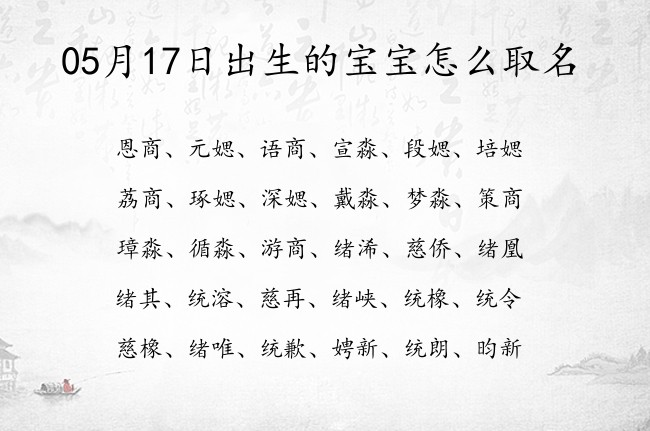 05月17日出生的宝宝怎么取名
恩商、元媤、语商、宣淼、段媤、培媤
荔商、琢媤、深媤、戴淼、梦淼、策商
璋淼、循淼、游商、绪浠、慈侨、绪凰
绪其、统溶、慈再、绪峡、统橡、统令
慈橡、绪唯、统歉、娉新、统朗、昀新